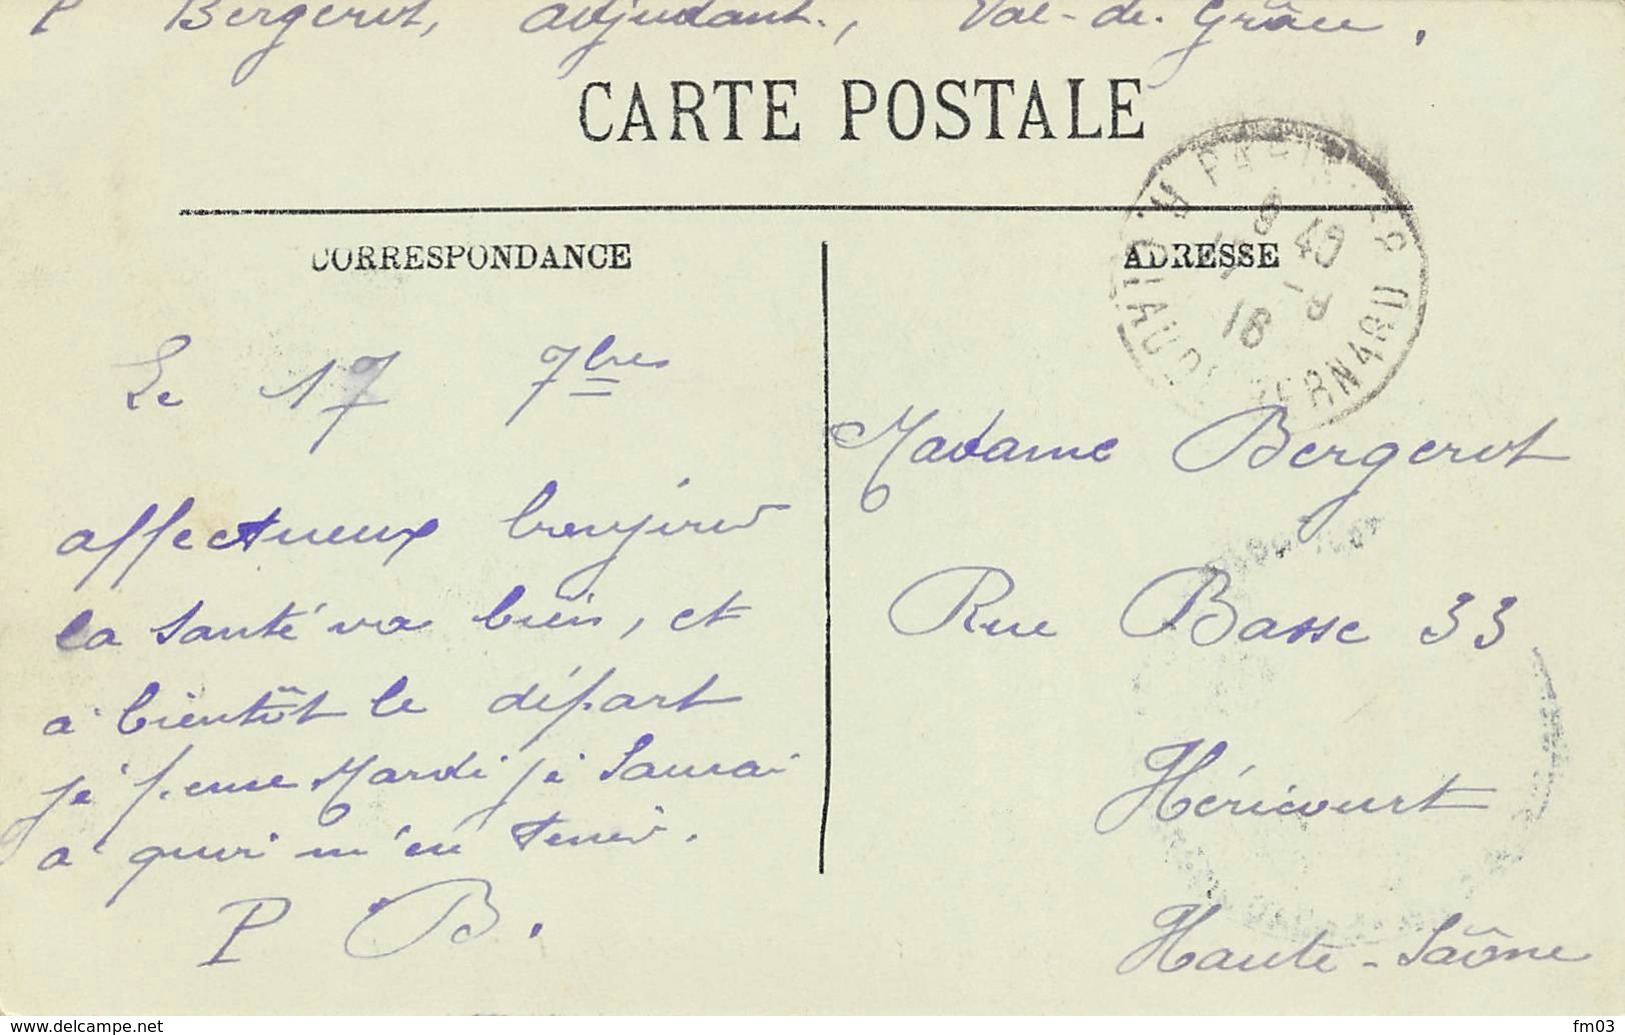 P Bergerot, adjudant, Val-de-Grâce,
CARTE POSTALE
CORRESPONDANCE
Le 17 7bres
affectueux bonjour
la santé va bien, et
à bientôt le départ
je pense Mardi je saurai
a quoi m'en tenir.
P B.
ADRESSE
Madame Bergerot
Rue Basse 33
Héricourt
Haute-Saône
8 45
18
BERNARD
www.delcampe.net
fm03